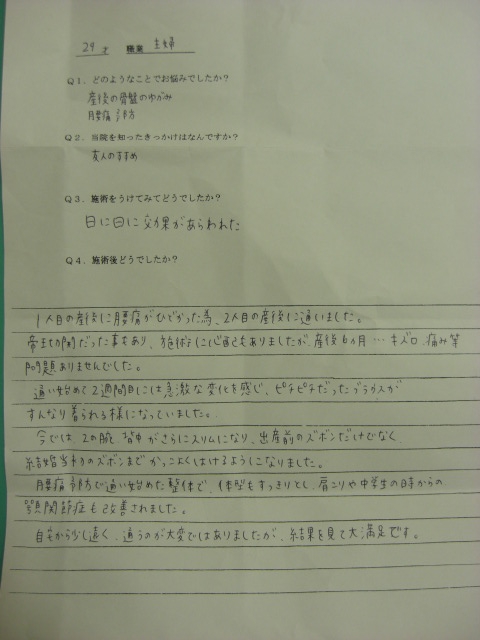 29才 職業 主婦
Q1. どのようなことでお悩みでしたか？
産後の骨盤のゆがみ
腰痛予防
Q2. 当院を知ったきっかけはなんですか？
友人のすすめ
Q3. 施術をうけてみてどうでしたか？
日に日に効果があらわれた
Q4. 施術後どうでしたか？
1人目の産後に腰痛がひどかった為、2人目の産後に通いました。
帝王切開だった事もあり、施術に心配もありましたが、産後6ヵ月…キズ口、痛み等
問題ありませんでした。
通い始めて2週間目には急激な変化を感じ、ピチピチだったブラウスが
すんなり着られる様になっていました。
今では、2の腕、背中がさらにスリムになり、出産前のズボンだけでなく、
結婚当初のズボンまでかっこよくはけるようになりました。
腰痛予防で通い始めた整体で、体型もすっきりとし、肩こりや中学生の時からの
顎関節症も改善されました。
自宅から少し遠く、通うのが大変ではありましたが、結果を見て大満足です。